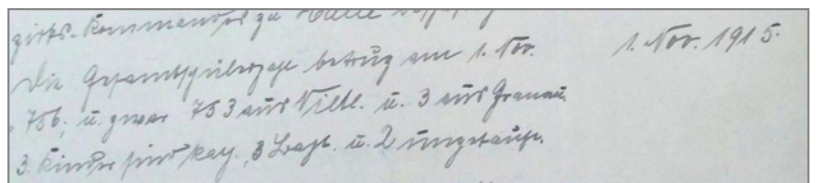 zirks-Kommandos zu Halle
Die Gesamtschülerzahl betrug am 1. Nov. 1. Nov. 1915.
756, u. zwar 753 aus Nietl. u. 3 aus Granau.
3 Kinder sind kath., 3 Bapt. u. 2 ungetauft.